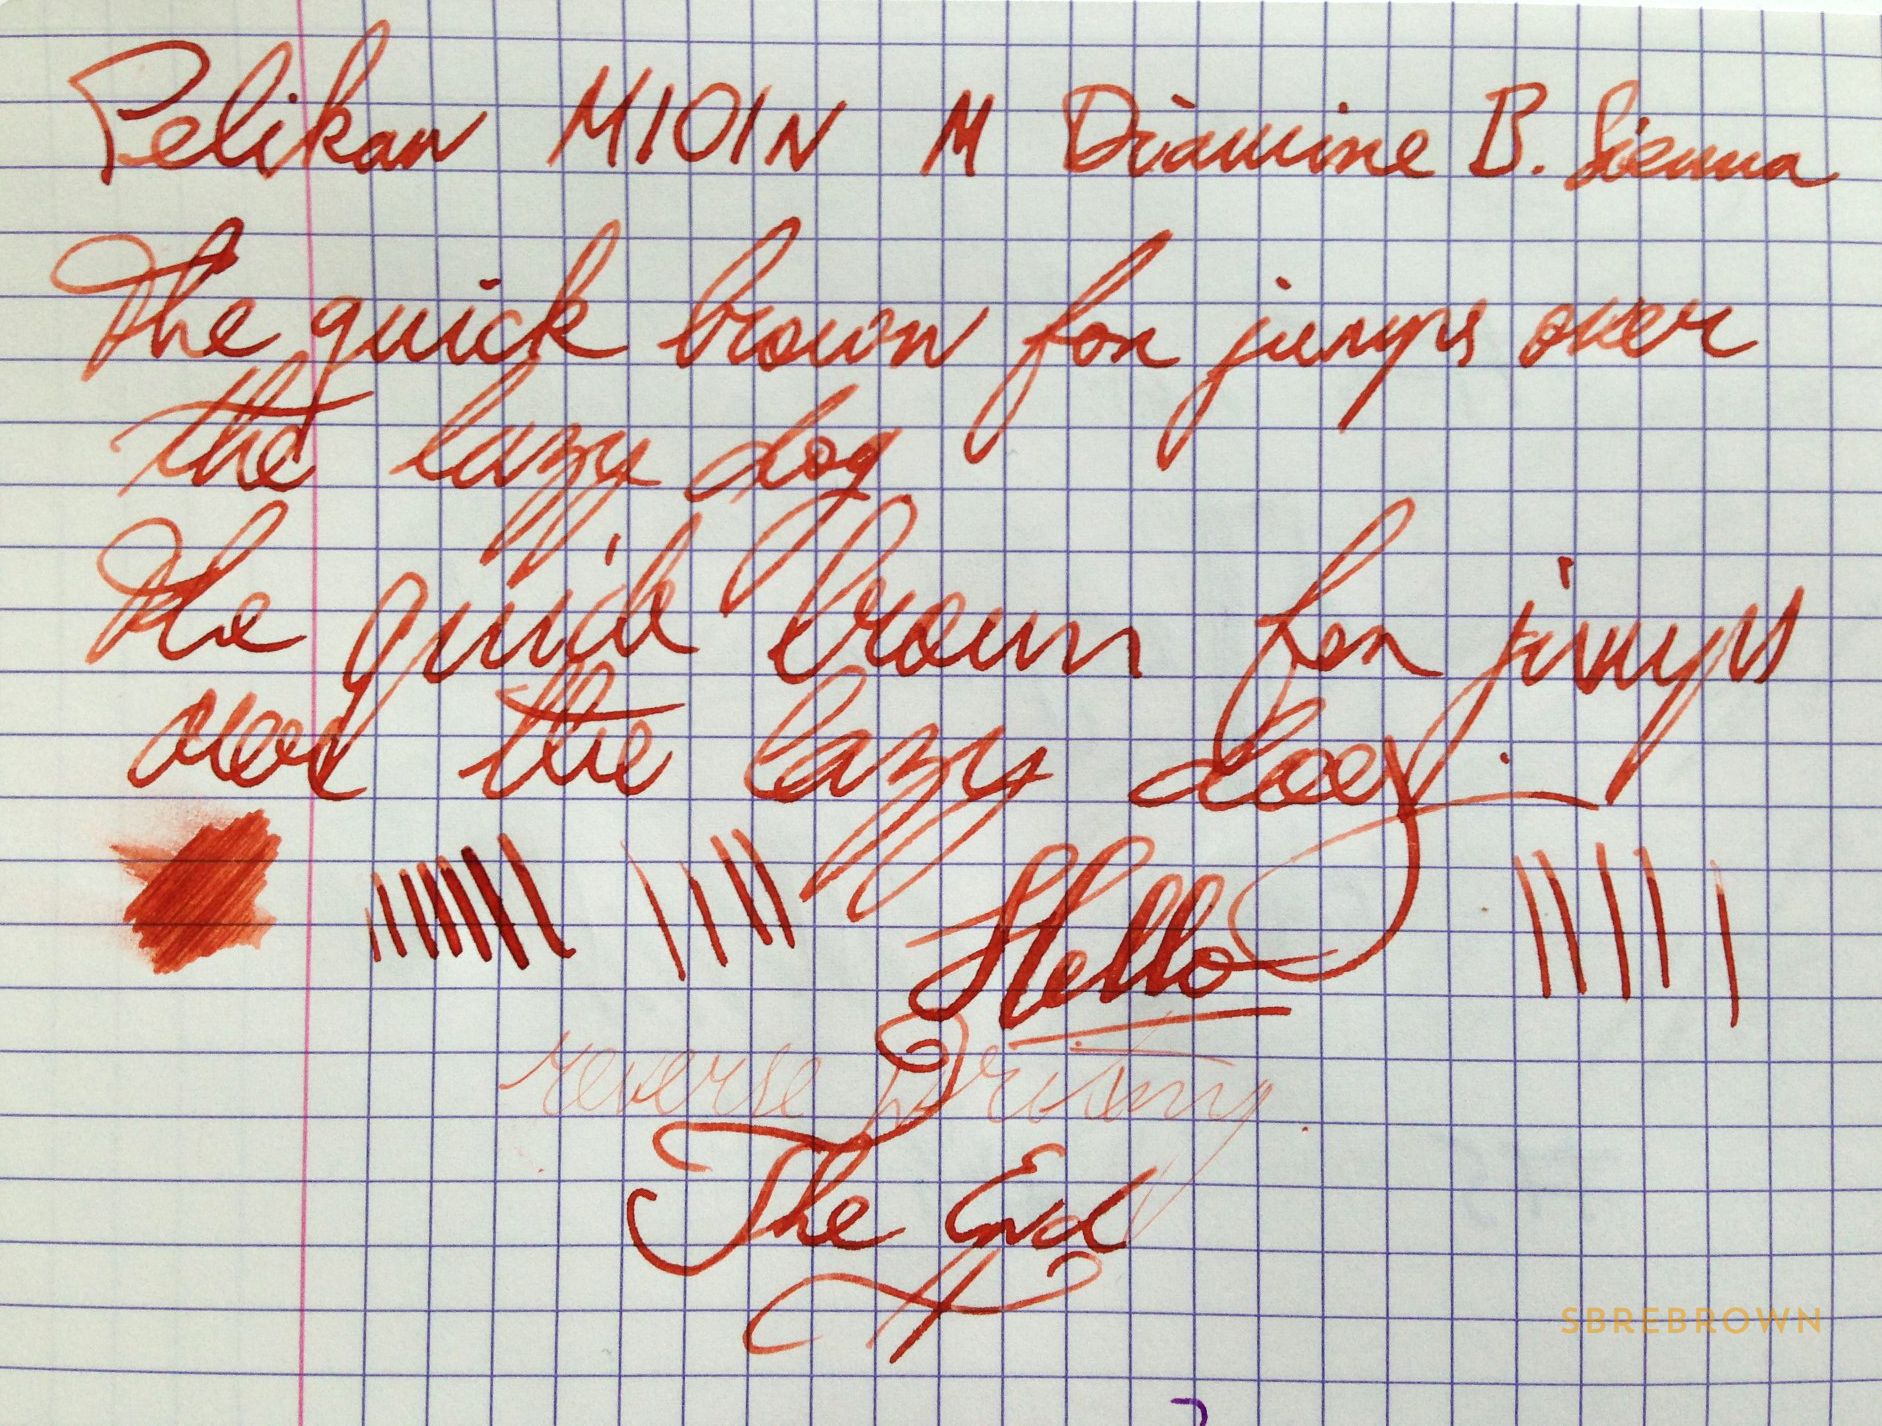 Pelikan M101N M Diamine B. Sienna
The quick brown fox jumps over
the lazy dog
The quick brown fox jumps
over the lazy dog.
Hello
reverse writing
The End
SBREBROWN